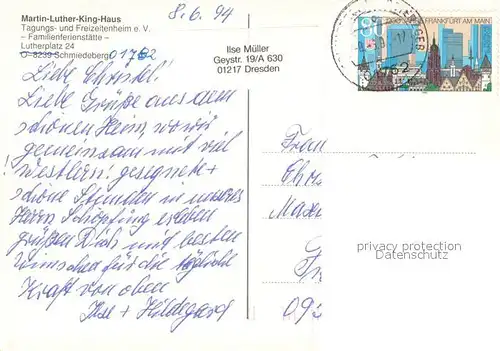 Martin-Luther-King-Haus
Tagungs- und Freizeitenheim e. V.
– Familienferienstätte –
Lutherplatz 24
O-8239 Schmiedeberg 01762
8.6.94
Ilse Müller
Geystr. 19/A 630
01217 Dresden
1200 JAHRE FRANKFURT AM MAIN
Liebe Christel!
Liebe Grüße aus dem
schönen Heim, wo wir
gemeinsam mit viel
Westlern! gesegnete +
schöne Stunden in unseres
Herrn Schöpfung erleben
grüßen Dich mit besten
Wünschen für die tägliche
Kraft von oben
Ilse + Hildegard
Frau
Chr
092
privacy protection
Datenschutz